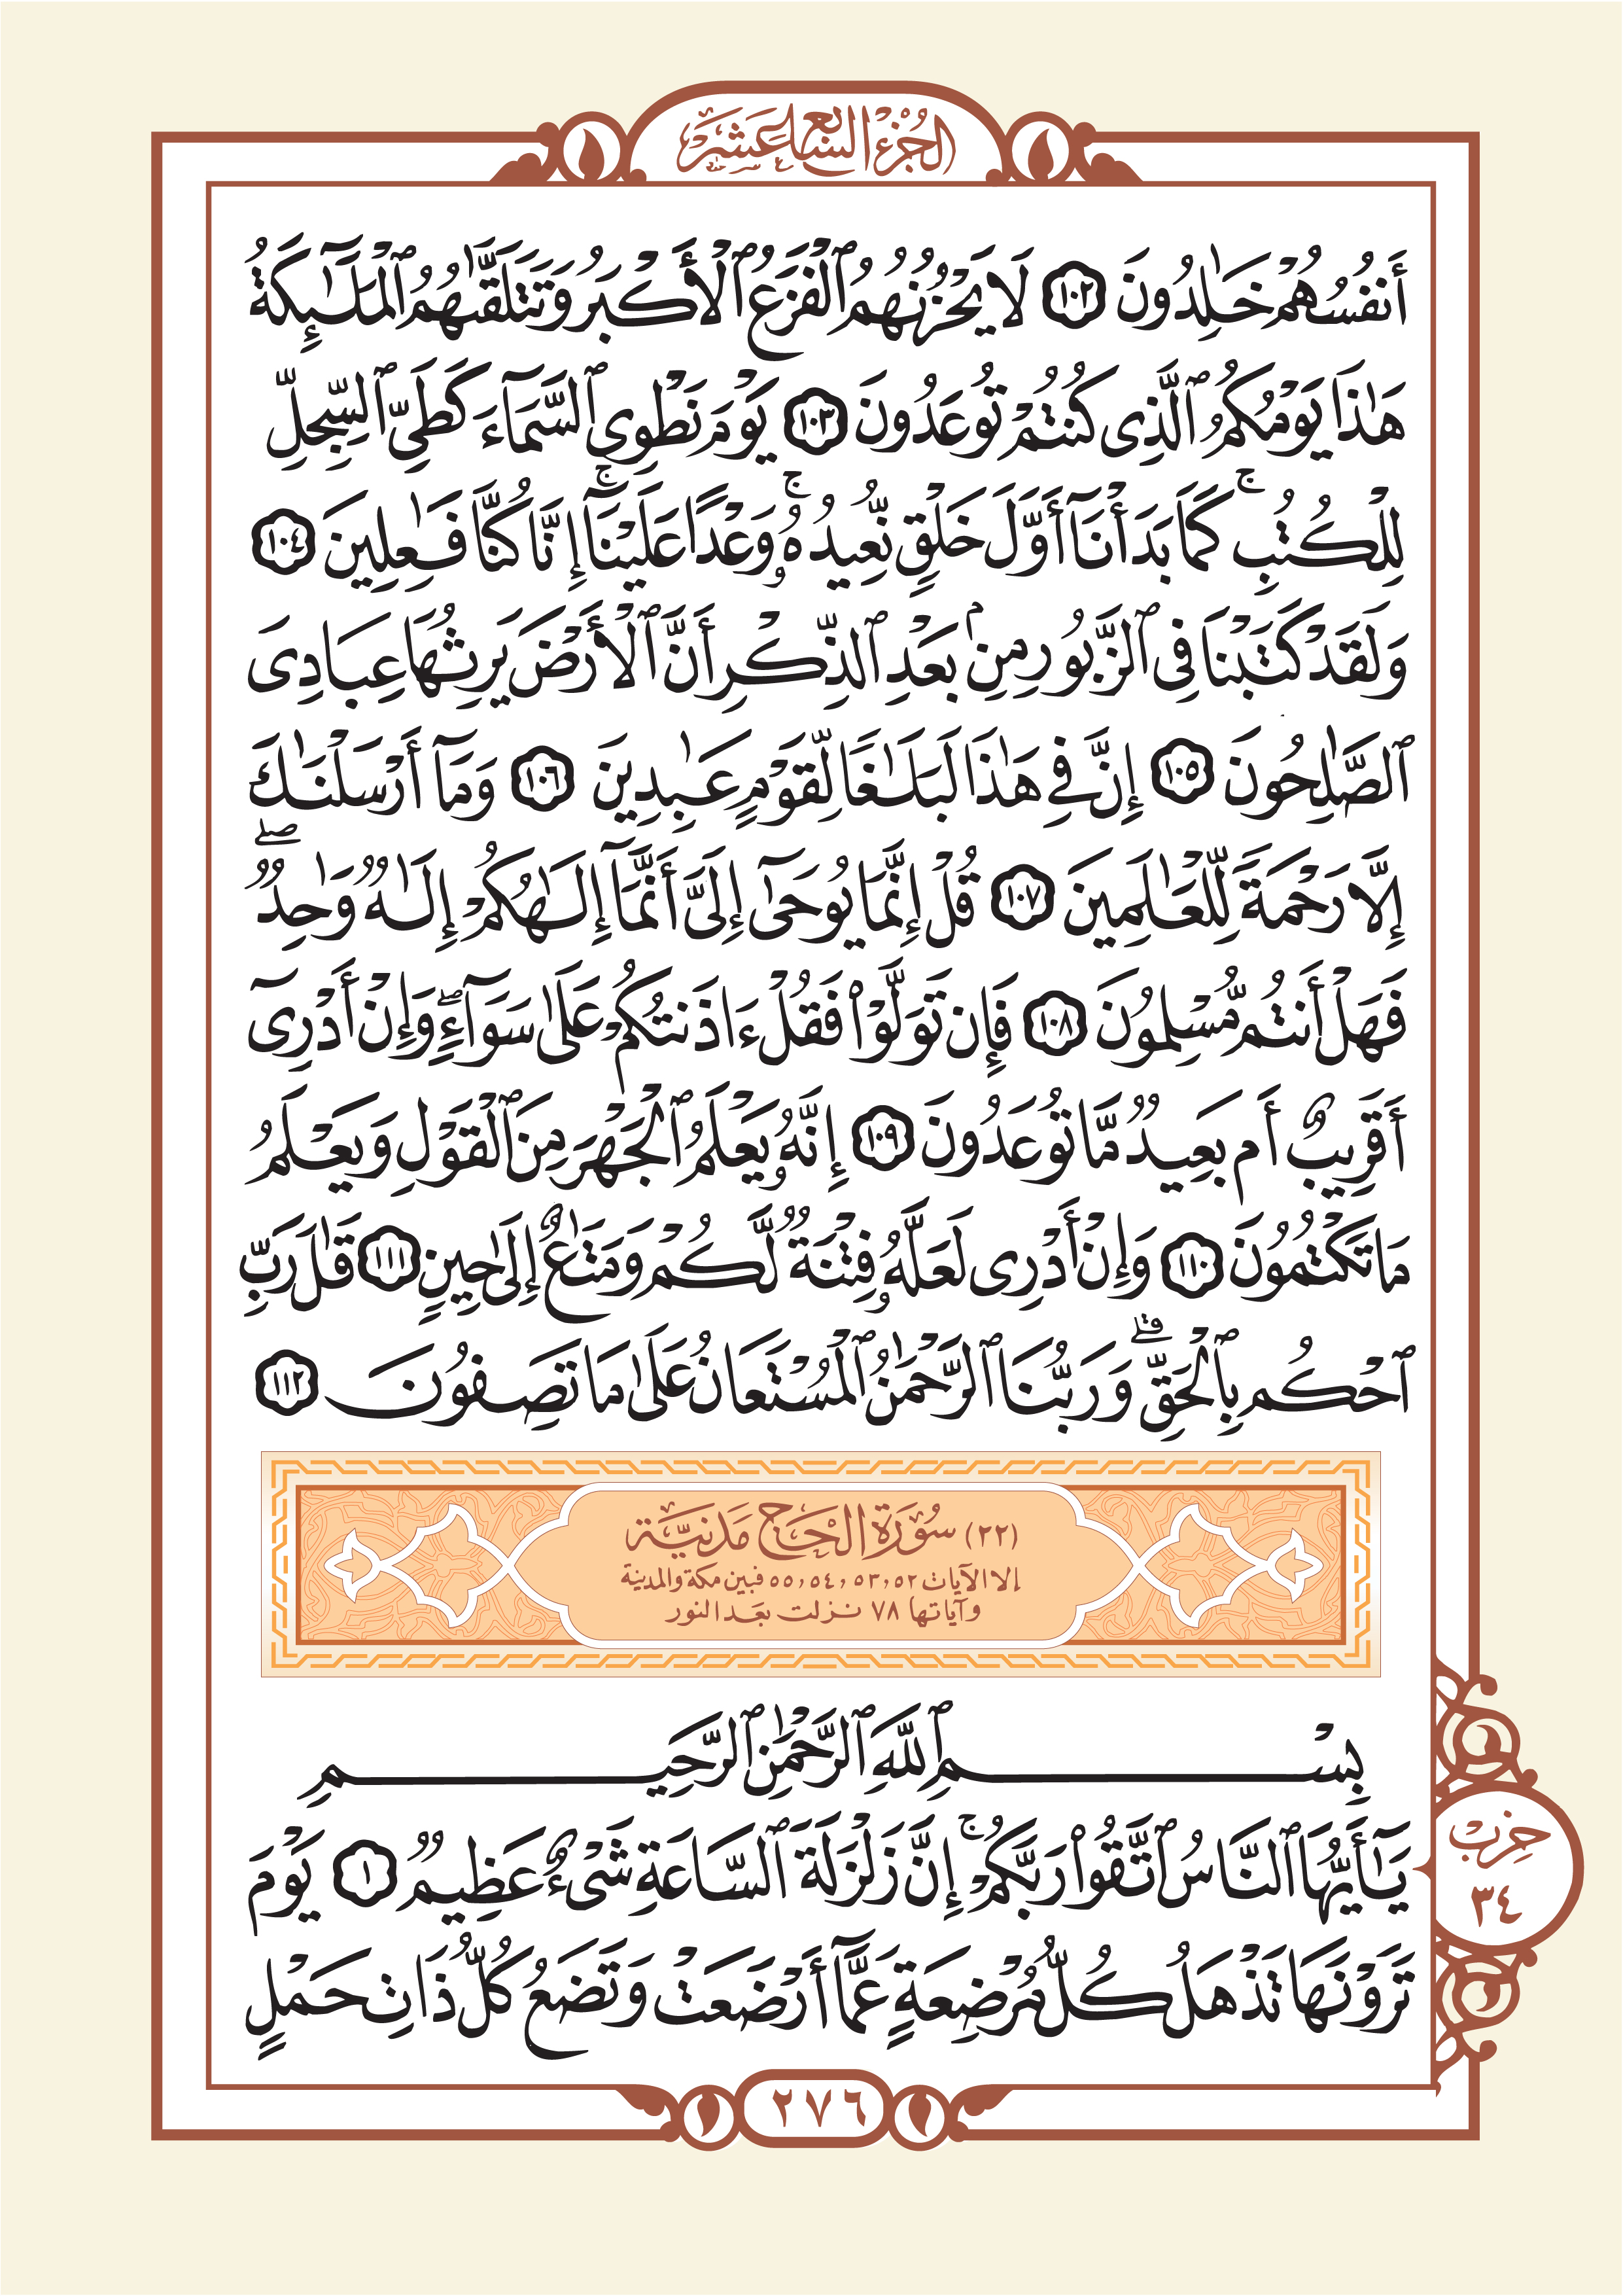 الجزء السابع عشر
أَنفُسُهُمْ خَـٰلِدُونَ ١٠٢ لَا يَحْزُنُهُمُ ٱلْفَزَعُ ٱلْأَكْبَرُ وَتَتَلَقَّىٰهُمُ ٱلْمَلَـٰٓئِكَةُ
هَـٰذَا يَوْمُكُمُ ٱلَّذِى كُنتُمْ تُوعَدُونَ ١٠٣ يَوْمَ نَطْوِى ٱلسَّمَآءَ كَطَىِّ ٱلسِّجِلِّ
لِلْكُتُبِ ۚ كَمَا بَدَأْنَآ أَوَّلَ خَلْقٍ نُّعِيدُهُۥ ۚ وَعْدًا عَلَيْنَآ ۚ إِنَّا كُنَّا فَـٰعِلِينَ ١٠٤
وَلَقَدْ كَتَبْنَا فِى ٱلزَّبُورِ مِنۢ بَعْدِ ٱلذِّكْرِ أَنَّ ٱلْأَرْضَ يَرِثُهَا عِبَادِىَ
ٱلصَّـٰلِحُونَ ١٠٥ إِنَّ فِى هَـٰذَا لَبَلَـٰغًا لِّقَوْمٍ عَـٰبِدِينَ ١٠٦ وَمَآ أَرْسَلْنَـٰكَ
إِلَّا رَحْمَةً لِّلْعَـٰلَمِينَ ١٠٧ قُلْ إِنَّمَا يُوحَىٰٓ إِلَىَّ أَنَّمَآ إِلَـٰهُكُمْ إِلَـٰهٌ وَٰحِدٌ ۖ
فَهَلْ أَنتُم مُّسْلِمُونَ ١٠٨ فَإِن تَوَلَّوْا۟ فَقُلْ ءَاذَنتُكُمْ عَلَىٰ سَوَآءٍ ۖ وَإِنْ أَدْرِىٓ
أَقَرِيبٌ أَم بَعِيدٌ مَّا تُوعَدُونَ ١٠٩ إِنَّهُۥ يَعْلَمُ ٱلْجَهْرَ مِنَ ٱلْقَوْلِ وَيَعْلَمُ
مَا تَكْتُمُونَ ١١٠ وَإِنْ أَدْرِى لَعَلَّهُۥ فِتْنَةٌ لَّكُمْ وَمَتَـٰعٌ إِلَىٰ حِينٍ ١١١ قَـٰلَ رَبِّ
ٱحْكُم بِٱلْحَقِّ ۗ وَرَبُّنَا ٱلرَّحْمَـٰنُ ٱلْمُسْتَعَانُ عَلَىٰ مَا تَصِفُونَ ١١٢
(٢٢) سُورَةُ الحَجِّ مَدَنِيَّة
إلا الآيات ٥٢، ٥٣، ٥٤، ٥٥ فبين مكة والمدينة
وآياتها ٧٨ نزلت بعد النور
بِسْمِ ٱللَّهِ ٱلرَّحْمَـٰنِ ٱلرَّحِيمِ
يَـٰٓأَيُّهَا ٱلنَّاسُ ٱتَّقُوا۟ رَبَّكُمْ ۚ إِنَّ زَلْزَلَةَ ٱلسَّاعَةِ شَىْءٌ عَظِيمٌ ١ يَوْمَ
تَرَوْنَهَا تَذْهَلُ كُلُّ مُرْضِعَةٍ عَمَّآ أَرْضَعَتْ وَتَضَعُ كُلُّ ذَاتِ حَمْلٍ
حزب
٣٤
٢٧٦